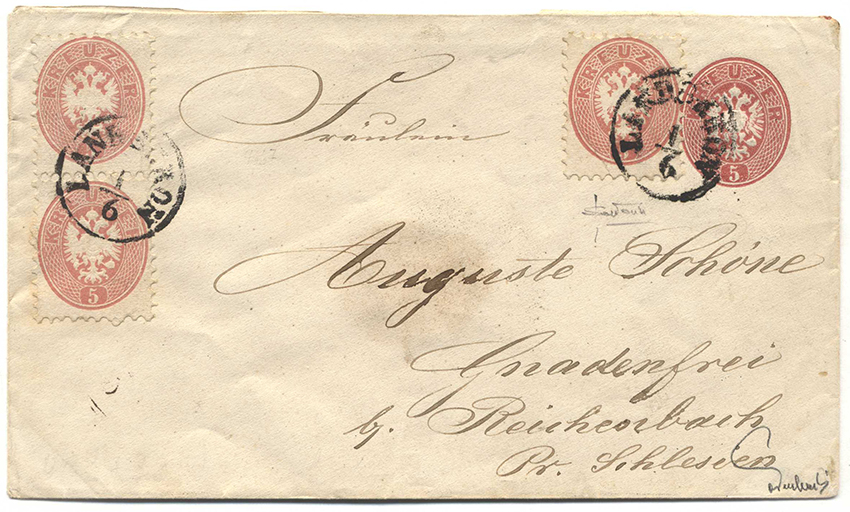 KREUZER
KREUZER
5
KREUZER
KREUZER
5
1
6
1
6
Fräulein
Auguste Schöne
Gnadenfrei
b. Reichenbach
Pr. Schlesien